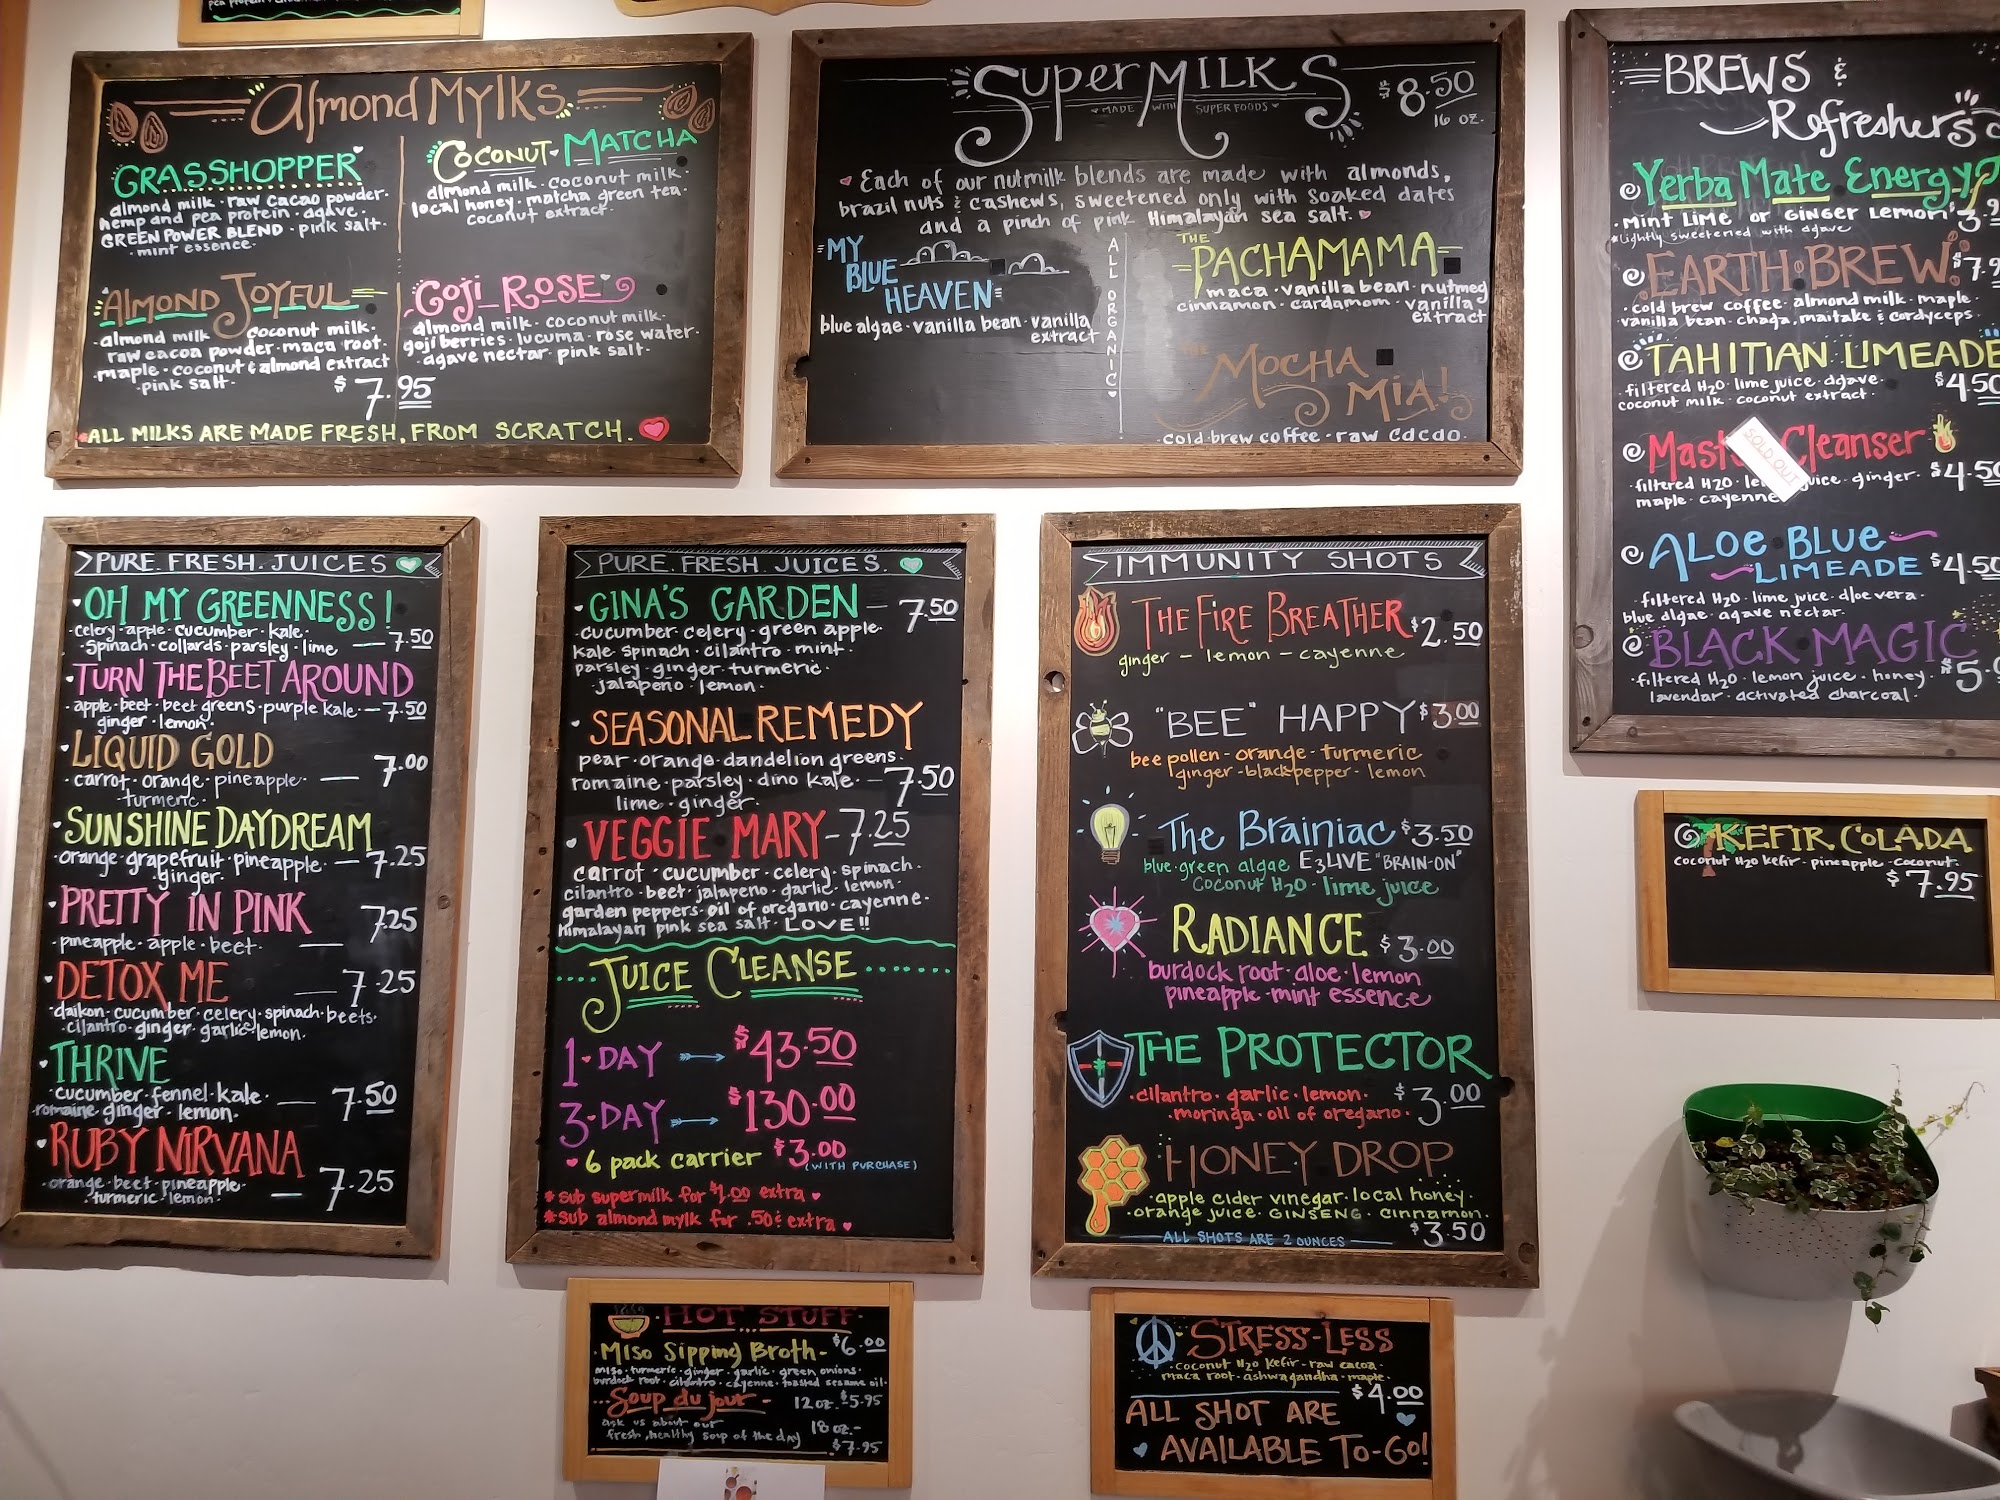 Almond Mylks
GRASSHOPPER
almond milk · raw cacao powder ·
hemp and pea protein · agave ·
GREEN POWER BLEND · pink salt ·
· mint essence ·
COCONUT · MATCHA
almond milk · coconut milk ·
local honey · matcha green tea ·
coconut extract ·
ALMOND JOYFUL
· almond milk · coconut milk ·
raw cacoa powder · maca root ·
· maple · coconut & almond extract
· pink salt ·
GOJI ROSE
almond milk · coconut milk ·
goji berries · lucuma · rose water ·
· agave nectar · pink salt ·
$7.95
*ALL MILKS ARE MADE FRESH, FROM SCRATCH.
SuperMILKS $8.50
MADE WITH SUPER FOODS 16 oz.
Each of our nutmilk blends are made with almonds,
brazil nuts & cashews, sweetened only with soaked dates
and a pinch of pink Himalayan sea salt.
MY
BLUE
HEAVEN
blue algae · vanilla bean · vanilla
extract
ALL ORGANIC
THE
PACHAMAMA
maca · vanilla bean · nutmeg
cinnamon · cardamom · vanilla
extract
THE
MOCHA
MIA!
· cold brew coffee · raw cacao ·
BREWS &
Refreshers
Yerba Mate Energy
MINT LIME or GINGER LEMON
*lightly sweetened with agave
EARTH BREW
· cold brew coffee · almond milk · maple ·
vanilla bean · chaga, maitake & cordyceps ·
TAHITIAN LIMEADE
· filtered H2O · lime juice · agave · $4.50
coconut milk · coconut extract ·
Cleanser
SOLD OUT
· filtered H2O · juice · ginger · $4.50
maple · cayenne
ALOE BLUE
LIMEADE $4.50
· filtered H2O · lime juice · aloe vera ·
blue algae · agave nectar ·
BLACK MAGIC
· filtered H2O · lemon juice · honey ·
lavendar · activated charcoal ·
PURE. FRESH. JUICES
OH MY GREENNESS!
· celery · apple · cucumber · kale ·
· spinach · collards · parsley · lime — 7.50
TURN THE BEET AROUND
· apple · beet · beet greens · purple kale — 7.50
ginger · lemon ·
LIQUID GOLD
· carrot · orange · pineapple · — 7.00
· turmeric ·
SUNSHINE DAYDREAM
· orange · grapefruit · pineapple · — 7.25
ginger ·
PRETTY IN PINK 7.25
· pineapple · apple · beet · —
DETOX ME — 7.25
· daikon · cucumber · celery · spinach · beets ·
· cilantro · ginger · garlic · lemon ·
THRIVE
· cucumber · fennel · kale · — 7.50
· romaine · ginger · lemon ·
RUBY NIRVANA
· orange · beet · pineapple · — 7.25
· turmeric · lemon ·
PURE. FRESH. JUICES.
GINA'S GARDEN — 7.50
· cucumber · celery · green apple ·
kale · spinach · cilantro · mint ·
parsley · ginger · turmeric ·
· jalapeño · lemon ·
SEASONAL REMEDY
pear · orange · dandelion greens ·
romaine · parsley · dino kale · — 7.50
lime · ginger ·
VEGGIE MARY — 7.25
carrot · cucumber · celery · spinach
cilantro · beet · jalapeño · garlic · lemon ·
garden peppers · oil of oregano · cayenne ·
himalayan pink sea salt · LOVE!!
JUICE CLEANSE
1·DAY $43.50
3·DAY $130.00
6 pack carrier $3.00
(WITH PURCHASE)
* sub supermilk for $1.00 extra
* sub almond mylk for .50¢ extra
IMMUNITY SHOTS
THE FIRE BREATHER $2.50
ginger – lemon – cayenne
"BEE" HAPPY $3.00
bee pollen · orange · turmeric
ginger · black pepper · lemon
The Brainiac $3.50
blue·green algae E3LIVE "BRAIN-ON"
COCONUT H2O · lime juice
RADIANCE $3.00
burdock root · aloe · lemon
pineapple · mint essence
THE PROTECTOR
· cilantro · garlic · lemon · $3.00
· moringa · oil of oregano ·
HONEY DROP
· apple cider vinegar · local honey ·
· orange juice · GINSENG · cinnamon ·
— ALL SHOTS ARE 2 OUNCES — $3.50
KEFIR COLADA
coconut H2O kefir · pineapple · coconut ·
$7.95
HOT STUFF
MISO SIPPING BROTH – $6.00
miso · turmeric · ginger · garlic · green onions ·
burdock root · cilantro · cayenne · toasted sesame oil ·
Soup du jour – 12oz. $5.95
ask us about our 18oz. –
fresh, healthy soup of the day $7.95
STRESS-LESS
· coconut H2O kefir · raw cacoa ·
maca root · ashwagandha · maple ·
$4.00
ALL SHOT ARE
AVAILABLE TO-GO!